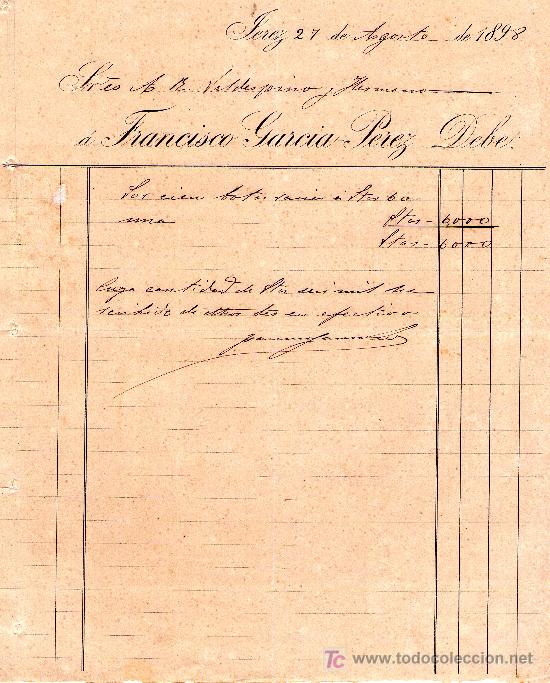 Jerez 27 de Agosto de 1898
Sres A. R. Valdespino y Hermano
á Francisco García Pérez Debe:
Por cien botas vacias á Ptas 60
una Ptas - 6000
Ptas - 6000
Cuya cantidad de Ptas seis mil he
recibido de dhos Sres en efectivo
TC www.todocoleccion.net